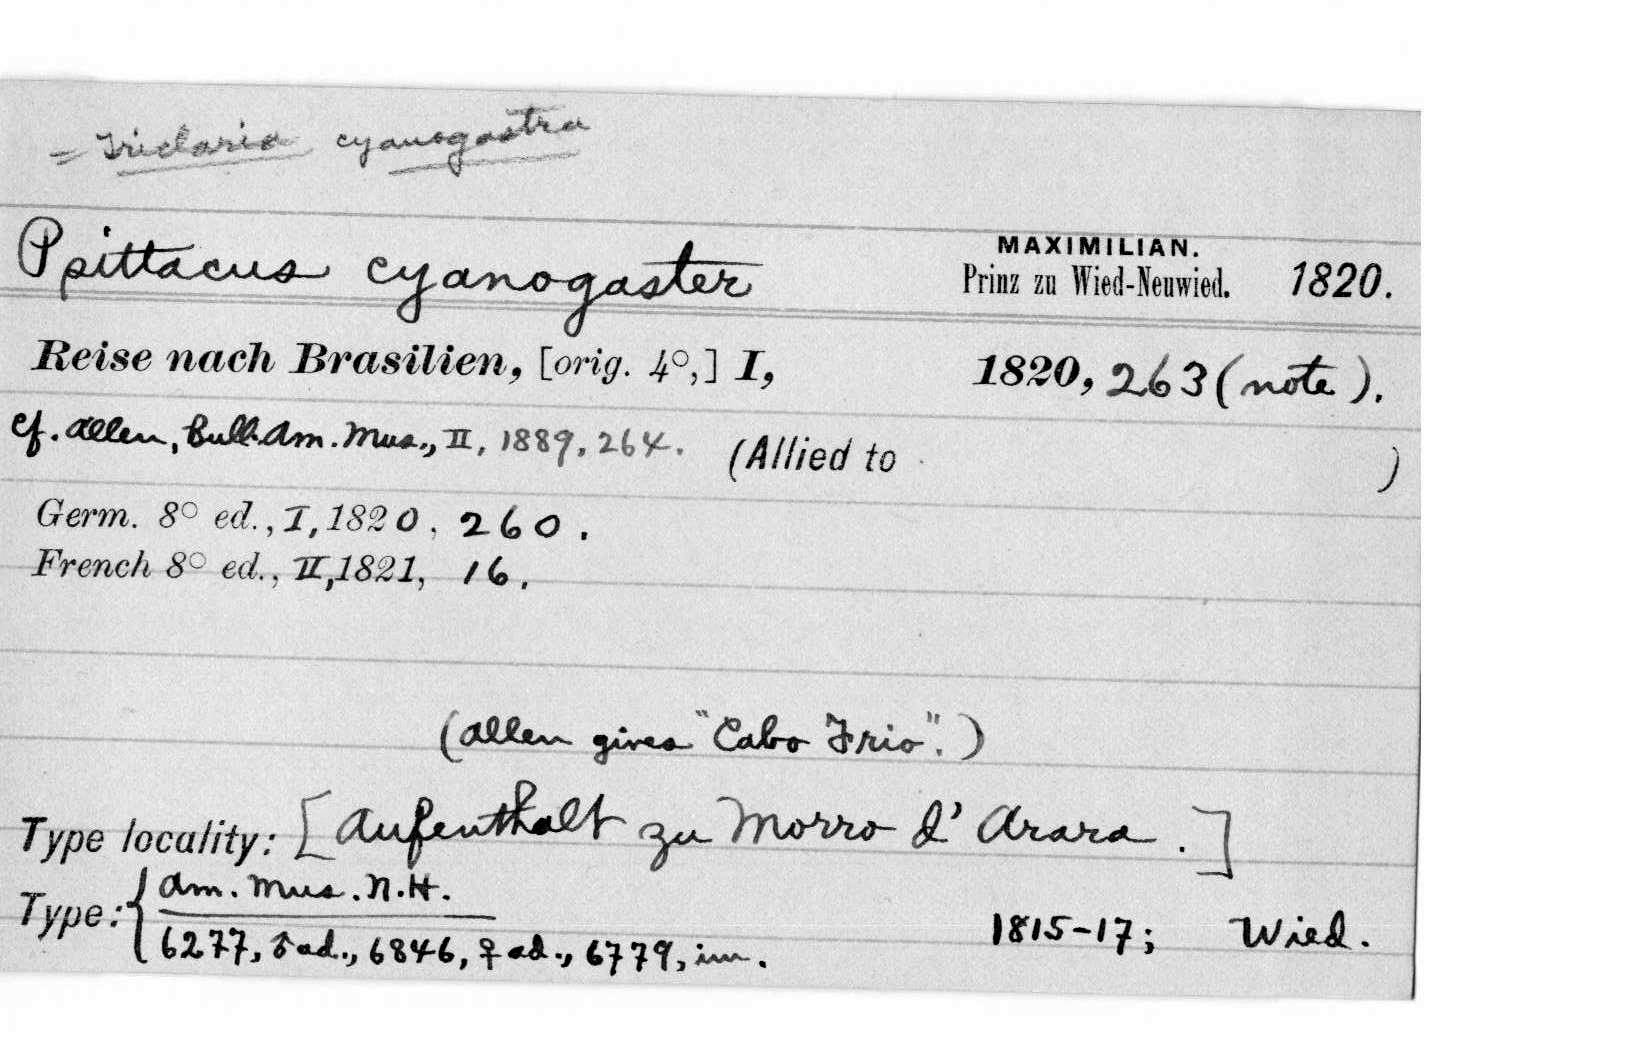 = Triclaria cyanogastra
Psittacus cyanogaster MAXIMILIAN. Prinz zu Wied-Neuwied. 1820.
Reise nach Brasilien, [orig. 4°,] I, 1820, 263 (note).
Cf. Allen, Bull. Am. Mus., II, 1889, 264. (Allied to )
Germ. 8° ed., I, 1820, 260.
French 8° ed., II, 1821, 16.
(Allen gives "Cabo Frio".)
Type locality: [Aufenthalt zu Morro d' Arara.]
Type: { Am. Mus. N.H.
6277, ♂ ad., 6846, ♀ ad., 6779, im. 1815-17; Wied.